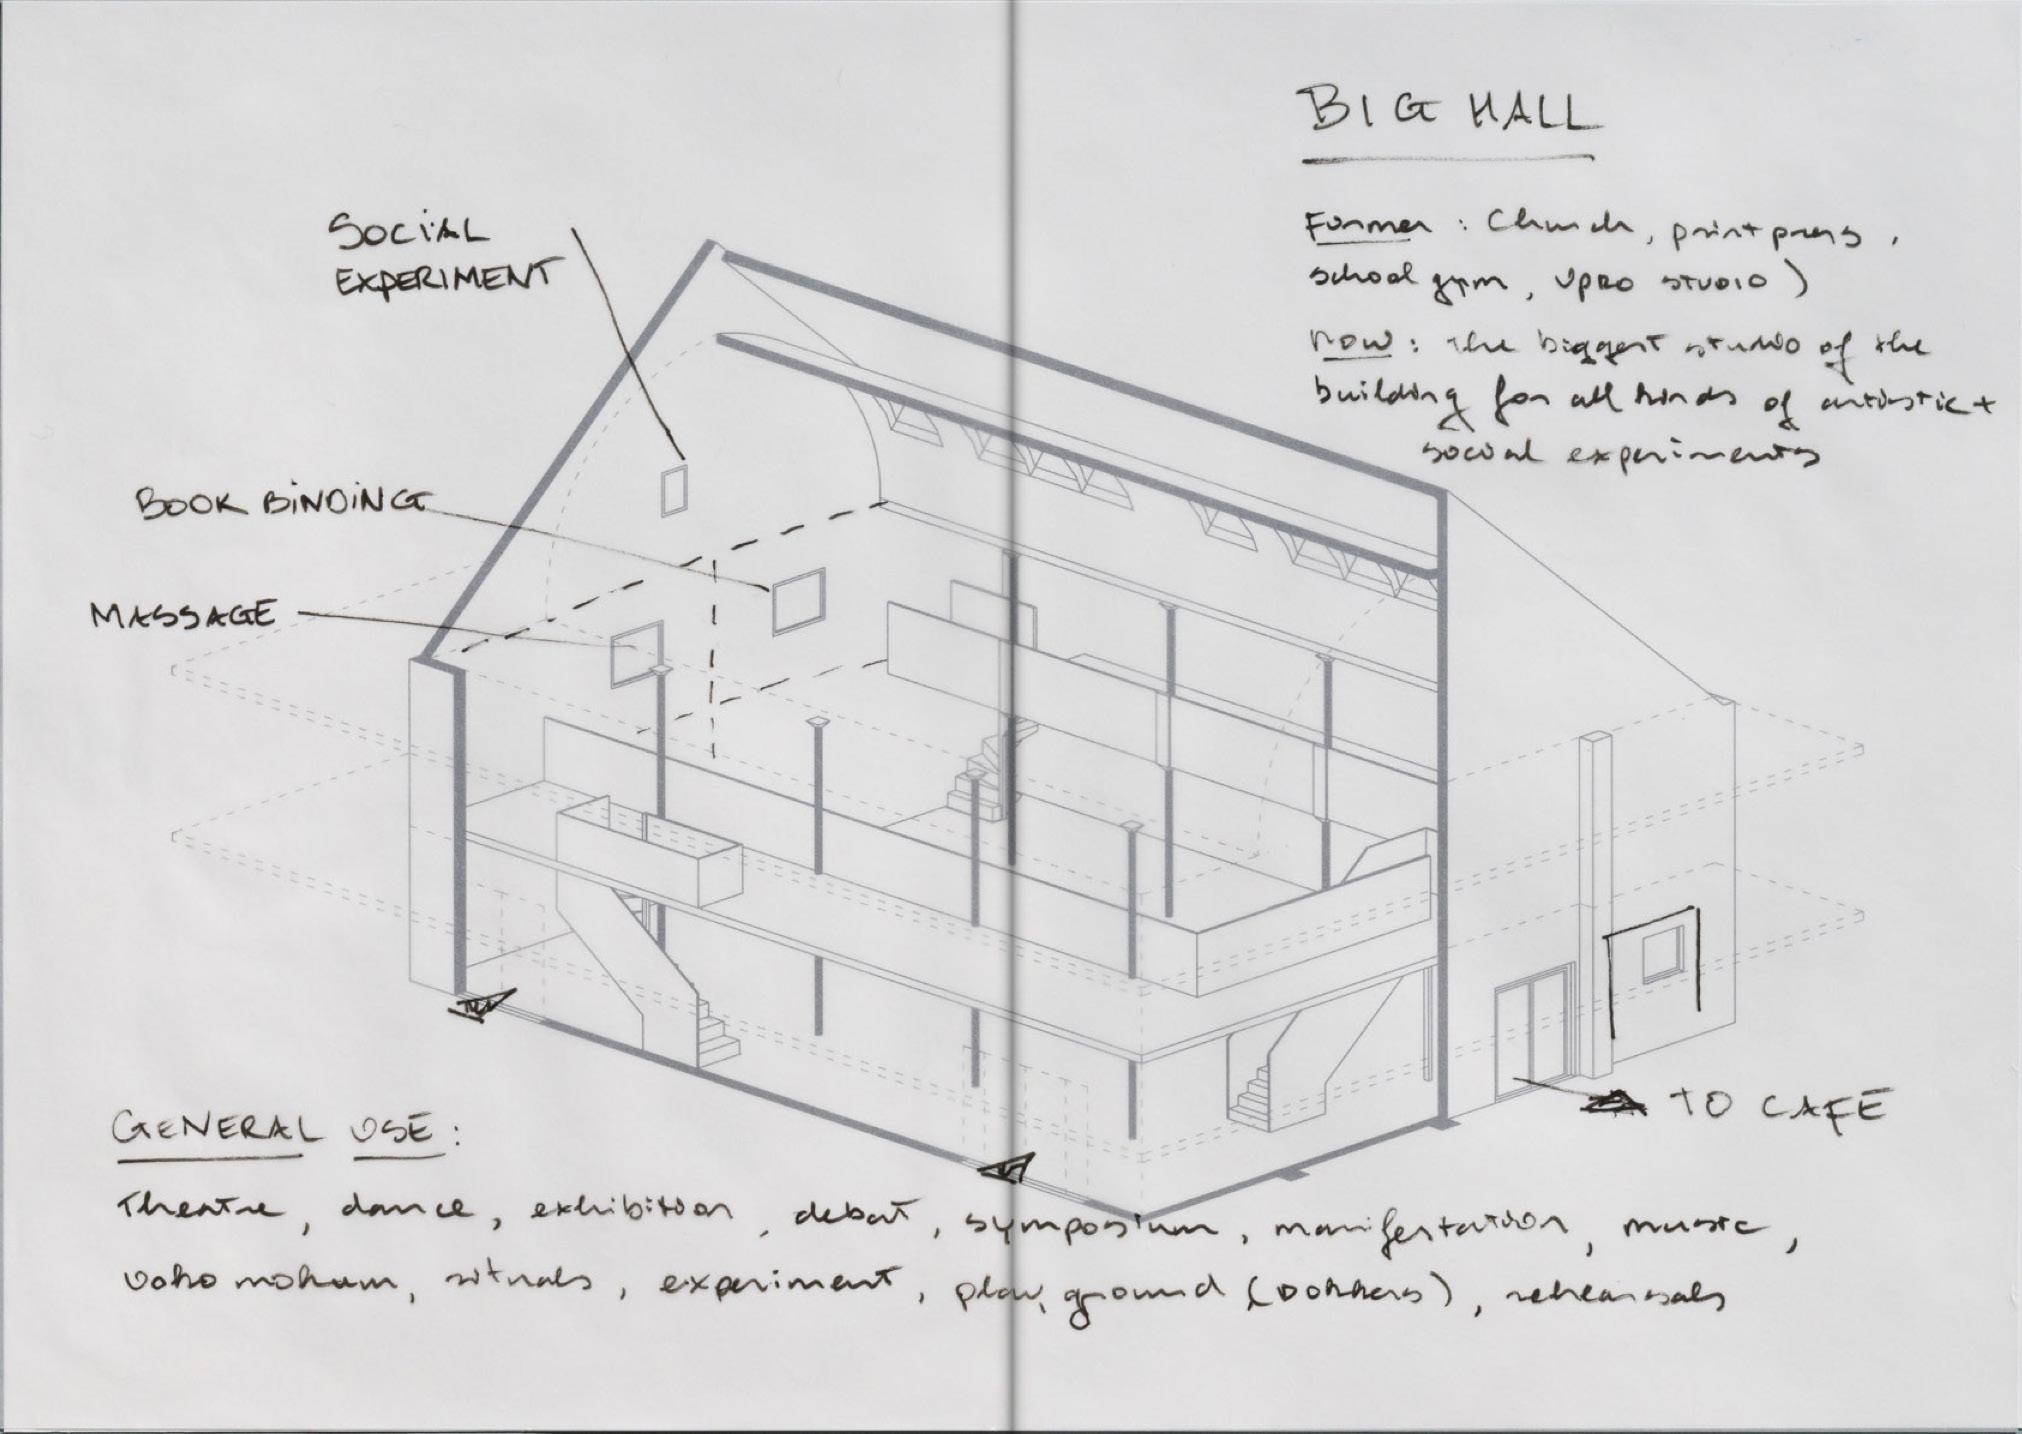 BIG HALL
Former : Church, printpress,
school gym, VPRO STUDIO)
NOW : The biggest studio of the
building for all kinds of artistic +
social experiments
SOCIAL
EXPERIMENT
BOOK BINDING
MASSAGE
TO CAFE
GENERAL USE :
Theatre, dance, exhibition, debat, symposium, manifestation, music,
rituals, experiment, play ground (Dokkers), rehearsals